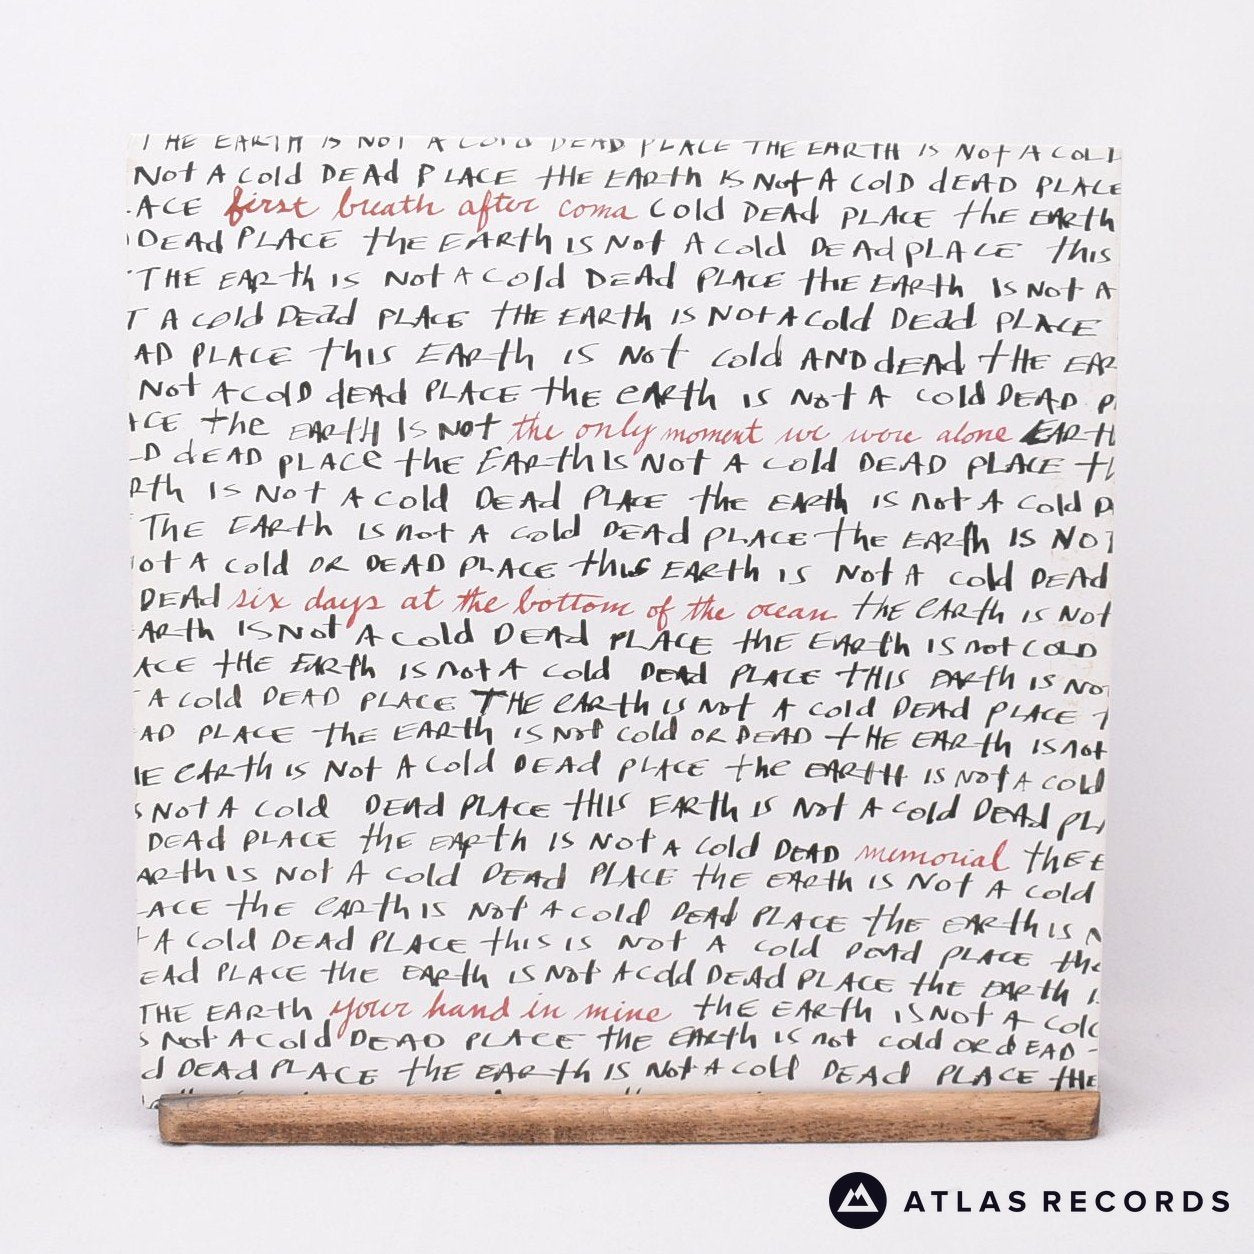 THE EARTH IS NOT A COLD DEAD PLACE THE EARTH IS NOT A COLD
NOT A COld DEAd PLACE tHE EARth IS Not A COlD dEAD PLACE
ACE first breath after coma COld DEAd PLACE thE EARth
DEAd PLACE thE EARth IS Not A Cold DEAd PLACE this
THE EARth is Not A COld DEAd PLACE thE EARth IS Not A
T A COld DEad PLACE tHE EARth IS Not A Cold DEad PLACE
AD PLACE this EARth IS Not Cold AND dEAD tHE EAR
Not A COlD dEAD PLACE thE eARth IS Not A Cold DEAD P
ACE the EARtH IS NOT the only moment we were alone EARtH
D dEAD PLACe thE EARth IS Not A Cold DEAD PLACE tH
Rth IS Not A Cold DEAd PLACE thE EARth IS not A Cold D
THE EARth IS not A Cold DEAd PLACE thE EARth IS NOT
ot A Cold OR DEAD PLACE this EARth IS Not A Cold DEAd
DEAd six days at the bottom of the ocean thE eARth IS Not
ARth IS Not A Cold DEAd PLACE thE EARth IS not COlD
ACE tHE EARth IS not A Cold DEAd PLACE tHIS EARth IS No
A Cold DEAD PLACE THE eARth IS Not A Cold DEAd PLACE T
AD PLACE thE EARth IS Not Cold OR DEAD tHE EARth IS not
HE eARth IS Not A Cold DEAd PLACE the EARtH IS Not A Cold
S Not A Cold DEAd PLACE tHIS EARth IS Not A Cold DEAd PLA
DEAd PLACE thE EARth IS Not A Cold DEAD memorial tHE E
ARth IS Not A Cold DEAd PLACE thE EARth IS Not A Cold
ACE thE eARth IS Not A Cold DEAd PLACE thE EARth IS N
t A Cold DEAd PLACE this IS Not A Cold DEAd PLACE the
EAd PLACE thE EARth IS Not A Cold DEAd PLACE thE EARth I
THE EARth your hand in mine thE EARth IS Not A Cold
S Not A Cold DEAD PLACE thE EARth IS not cold OR dEAD
d DEAd PLACE thE EARth IS Not A Cold DEAd PLACE tHE
ATLAS RECORDS